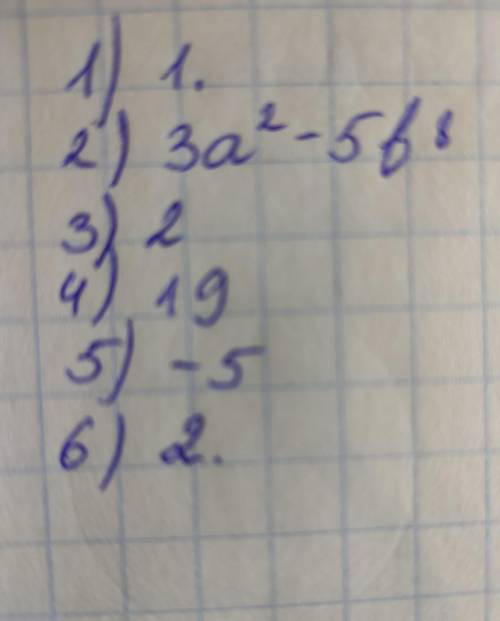 1) 1.
2) 3a² - 5b⁸
3) 2
4) 19
5) -5
6) 2.